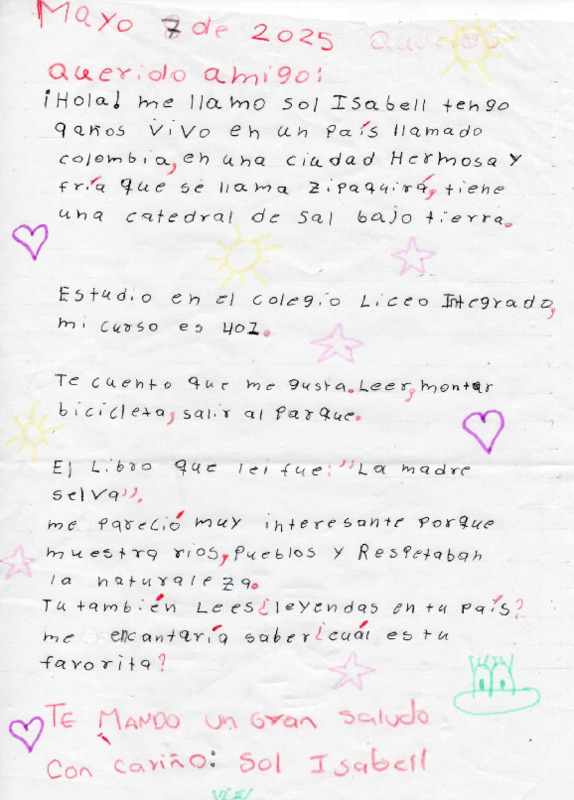 Mayo 7 de 2025
Querido amigo:
¡Hola! me llamo Sol Isabell tengo
9años vivo en un País llamado
colombia, en una ciudad Hermosa y
fría que se llama Zipaquirá, tiene
una catedral de Sal bajo tierra.
Estudio en el colegio Liceo Integrado,
mi curso es 402.
Te cuento que me gusta. Leer, montar
bicicleta, salir al Parque.
El Libro que lei fue: "La madre
selva".
me pareció muy interesante porque
muestra rios, Pueblos y Respetaban
la naturaleza.
Tu también Lees ¿leyendas en tu país?
me encantaría saber ¿cuál es tu
favorita?
TE MANDO un Gran Saludo
Con cariño: Sol Isabell